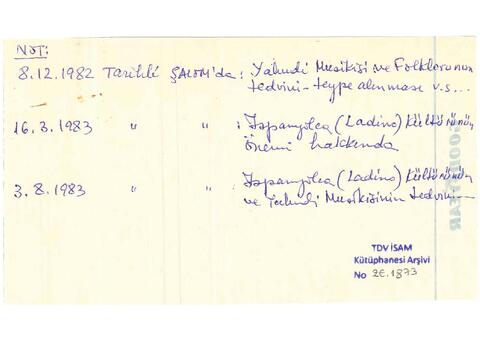 NOT:
8.12.1982 Tarihli ŞALOM'da: Yahudi Musikisi ve Folklorunun
tedvini-teype alınması v.s...
16.3.1983 " " : İspanyolca (Ladino) Kültürünün
önemi hakkında
3.8.1983 " " : İspanyolca (Ladino) Kültürünün
ve Yahudi Musikisinin tedvini
TDV İSAM
Kütüphanesi Arşivi
No 2E.1873
GOODYEAR